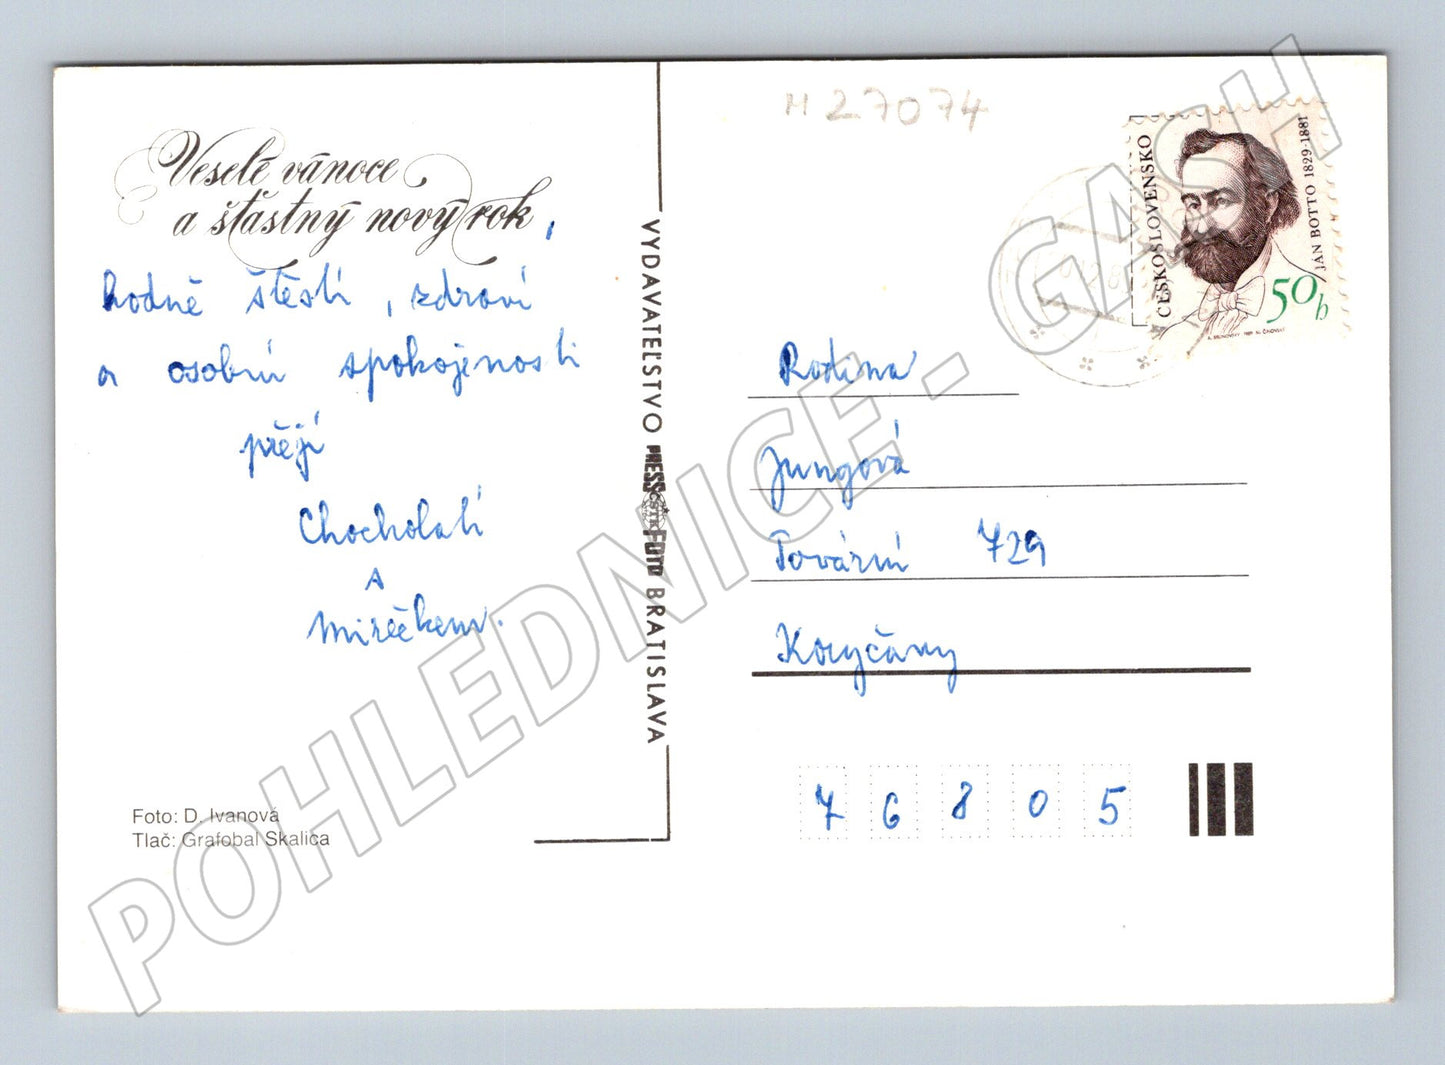 Veselé vánoce
a šťastný nový rok,
hodně štěstí, zdraví
a osobní spokojenosti
přejí
Chocholatí
s
Mirečkem.
Foto: D. Ivanová
Tlač: Grafobal Skalica
VYDAVATEĽSTVO PRESSFOTO BRATISLAVA
ČSTK
M 27074
ČESKOSLOVENSKO
JAN BOTTO 1829-1881
50 h
Rodina
Jungová
Tovární 729
Koryčany
76805
POHLEDNICE - GASH